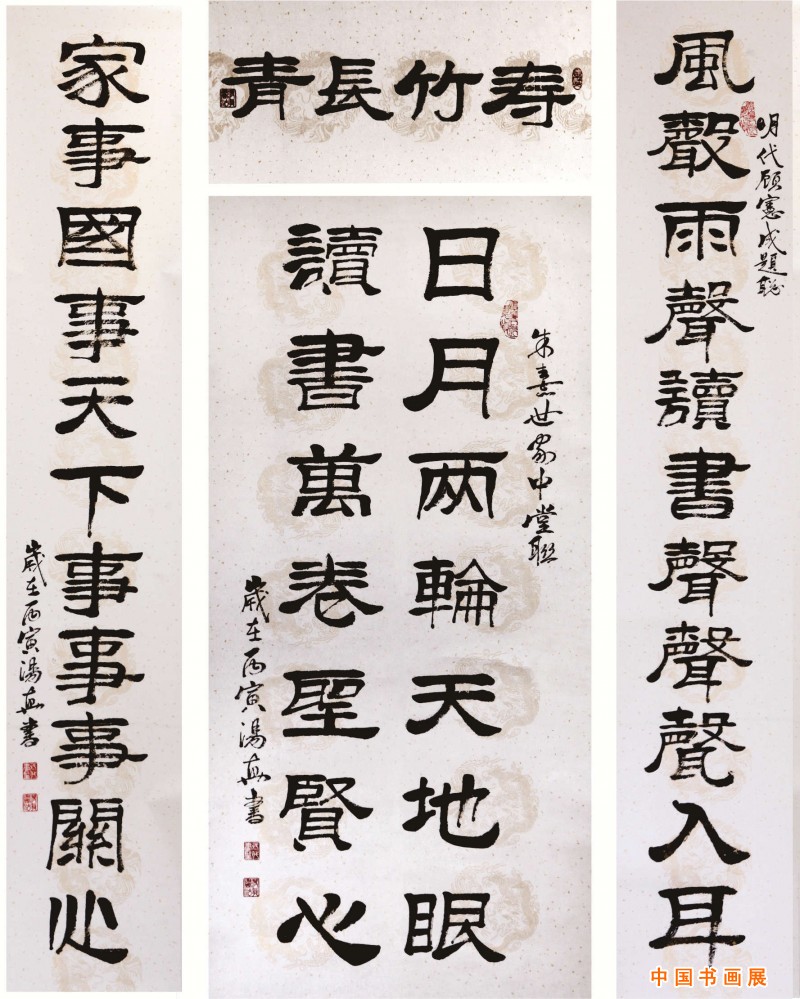 寿竹長青
風聲雨聲讀書聲聲聲入耳
明代顾憲成題聯
日月两輪天地眼
朱熹世家中堂聯
讀書萬卷聖賢心
歲在丙寅湯書
家事國事天下事事事關心
歲在丙寅湯書
中国书画展